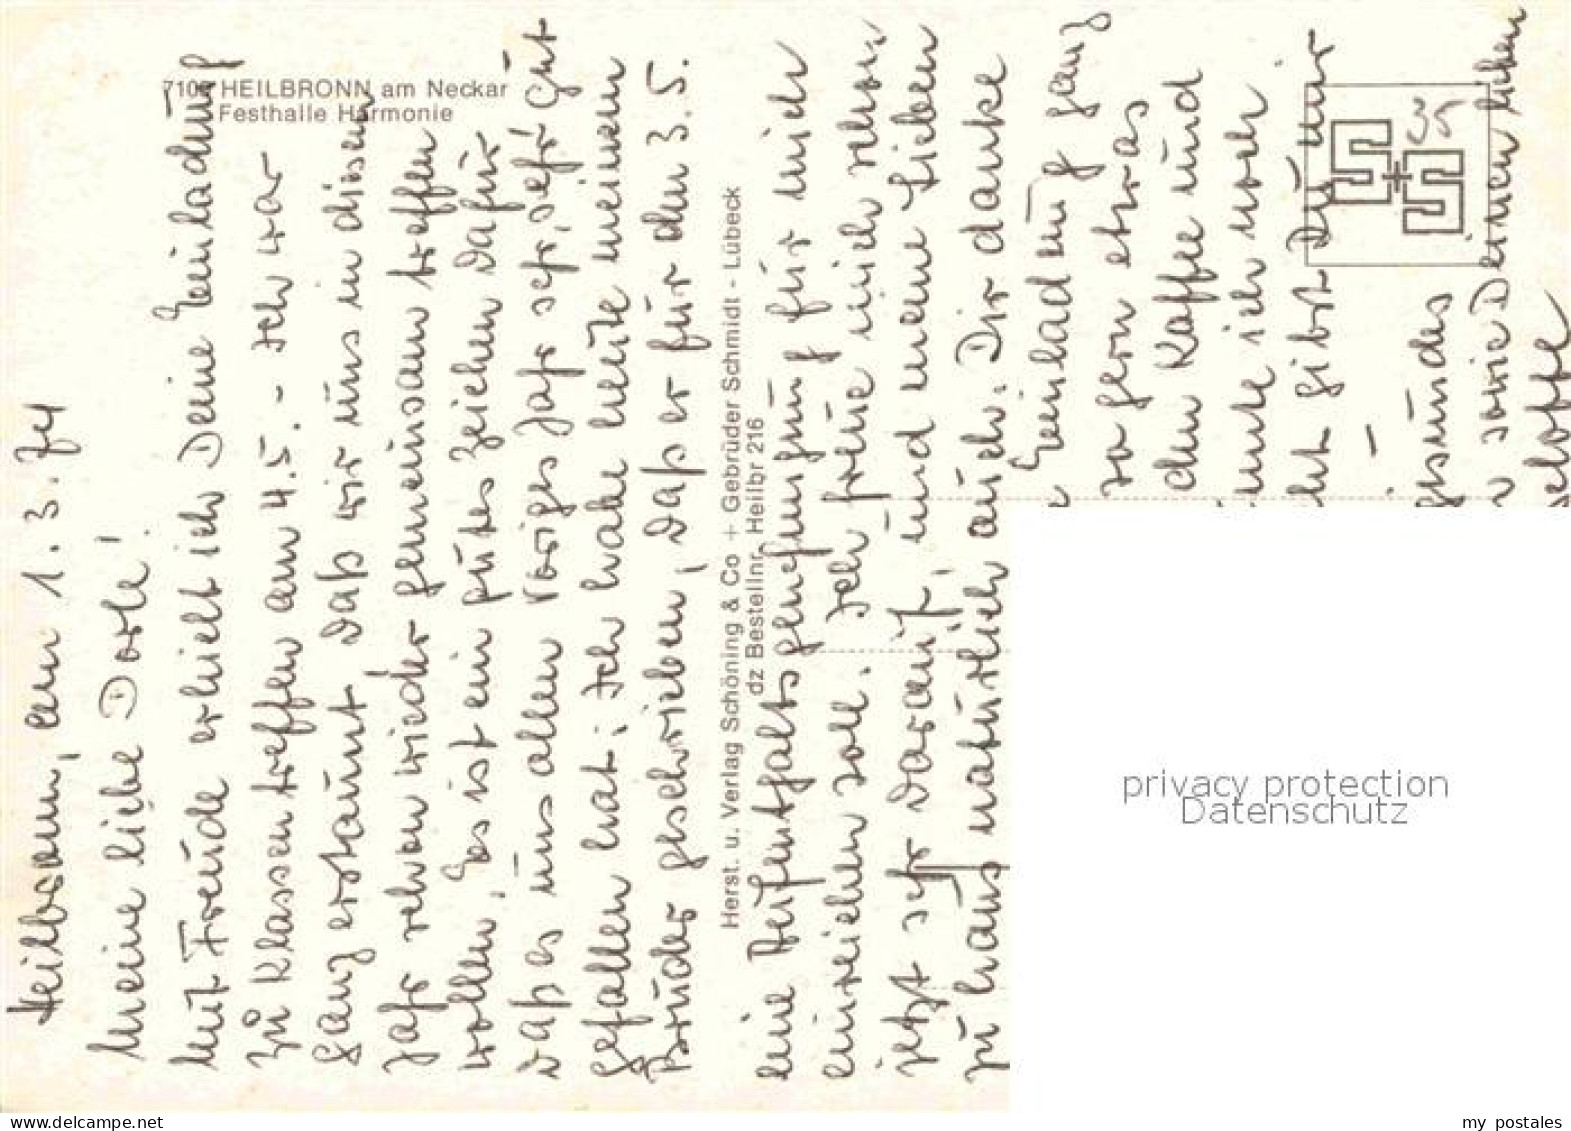 7100 HEILBRONN am Neckar
Festhalle Harmonie
Heilbronn, am 1.3.74
Meine liebe Dorle!
Mit Freude erhielt ich Deine Einladung
zu Klassentreffen am 4.5. - Ich war
ganz erstaunt, daß wir uns in diesem
Jahr schon wieder gemeinsam treffen
wollen. Es ist ein gutes Zeichen dafür
daß es uns allen voriges Jahr sehr, sehr gut
gefallen hat. Ich habe heute meinem
Bruder geschrieben, daß er für den 3.5.
Herst. u. Verlag Schöning & Co + Gebrüder Schmidt - Lübeck
dz Bestellnr. Heilbr 216
eine Aufenthaltsgenehmigung für mich
einreichen soll. Ich freue mich schon
jetzt sehr darauf, und meine Lieben
zu haus natürlich auch. Dir danke
Einladung ganz
so gern etwas
den Kaffee und
ich noch
gibst Du nur
-
gesundes
sowie Deinen lieben
privacy protection
Datenschutz
my postales